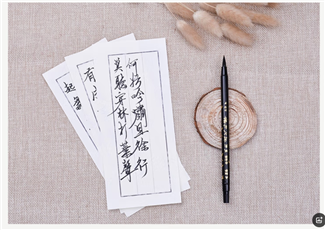 莫聽穿林打葉聲
何妨吟嘯且徐行
有
起